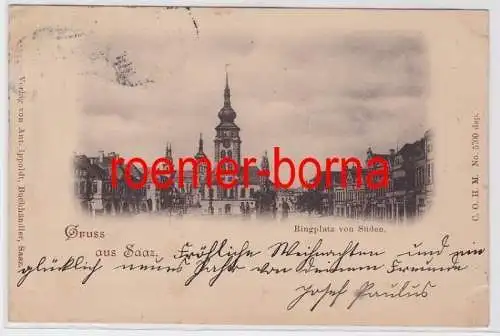 roemer-borna
Ringplatz von Süden.
Gruss
aus Saaz.
Fröhliche Weihnachten und ein
glücklich neues Jahr von deinem Freunde
Josef Paulus
Verlag von Ant. Ippoldt, Buchhändler, Saaz.
C. O. H. M. No. 5700 dep.